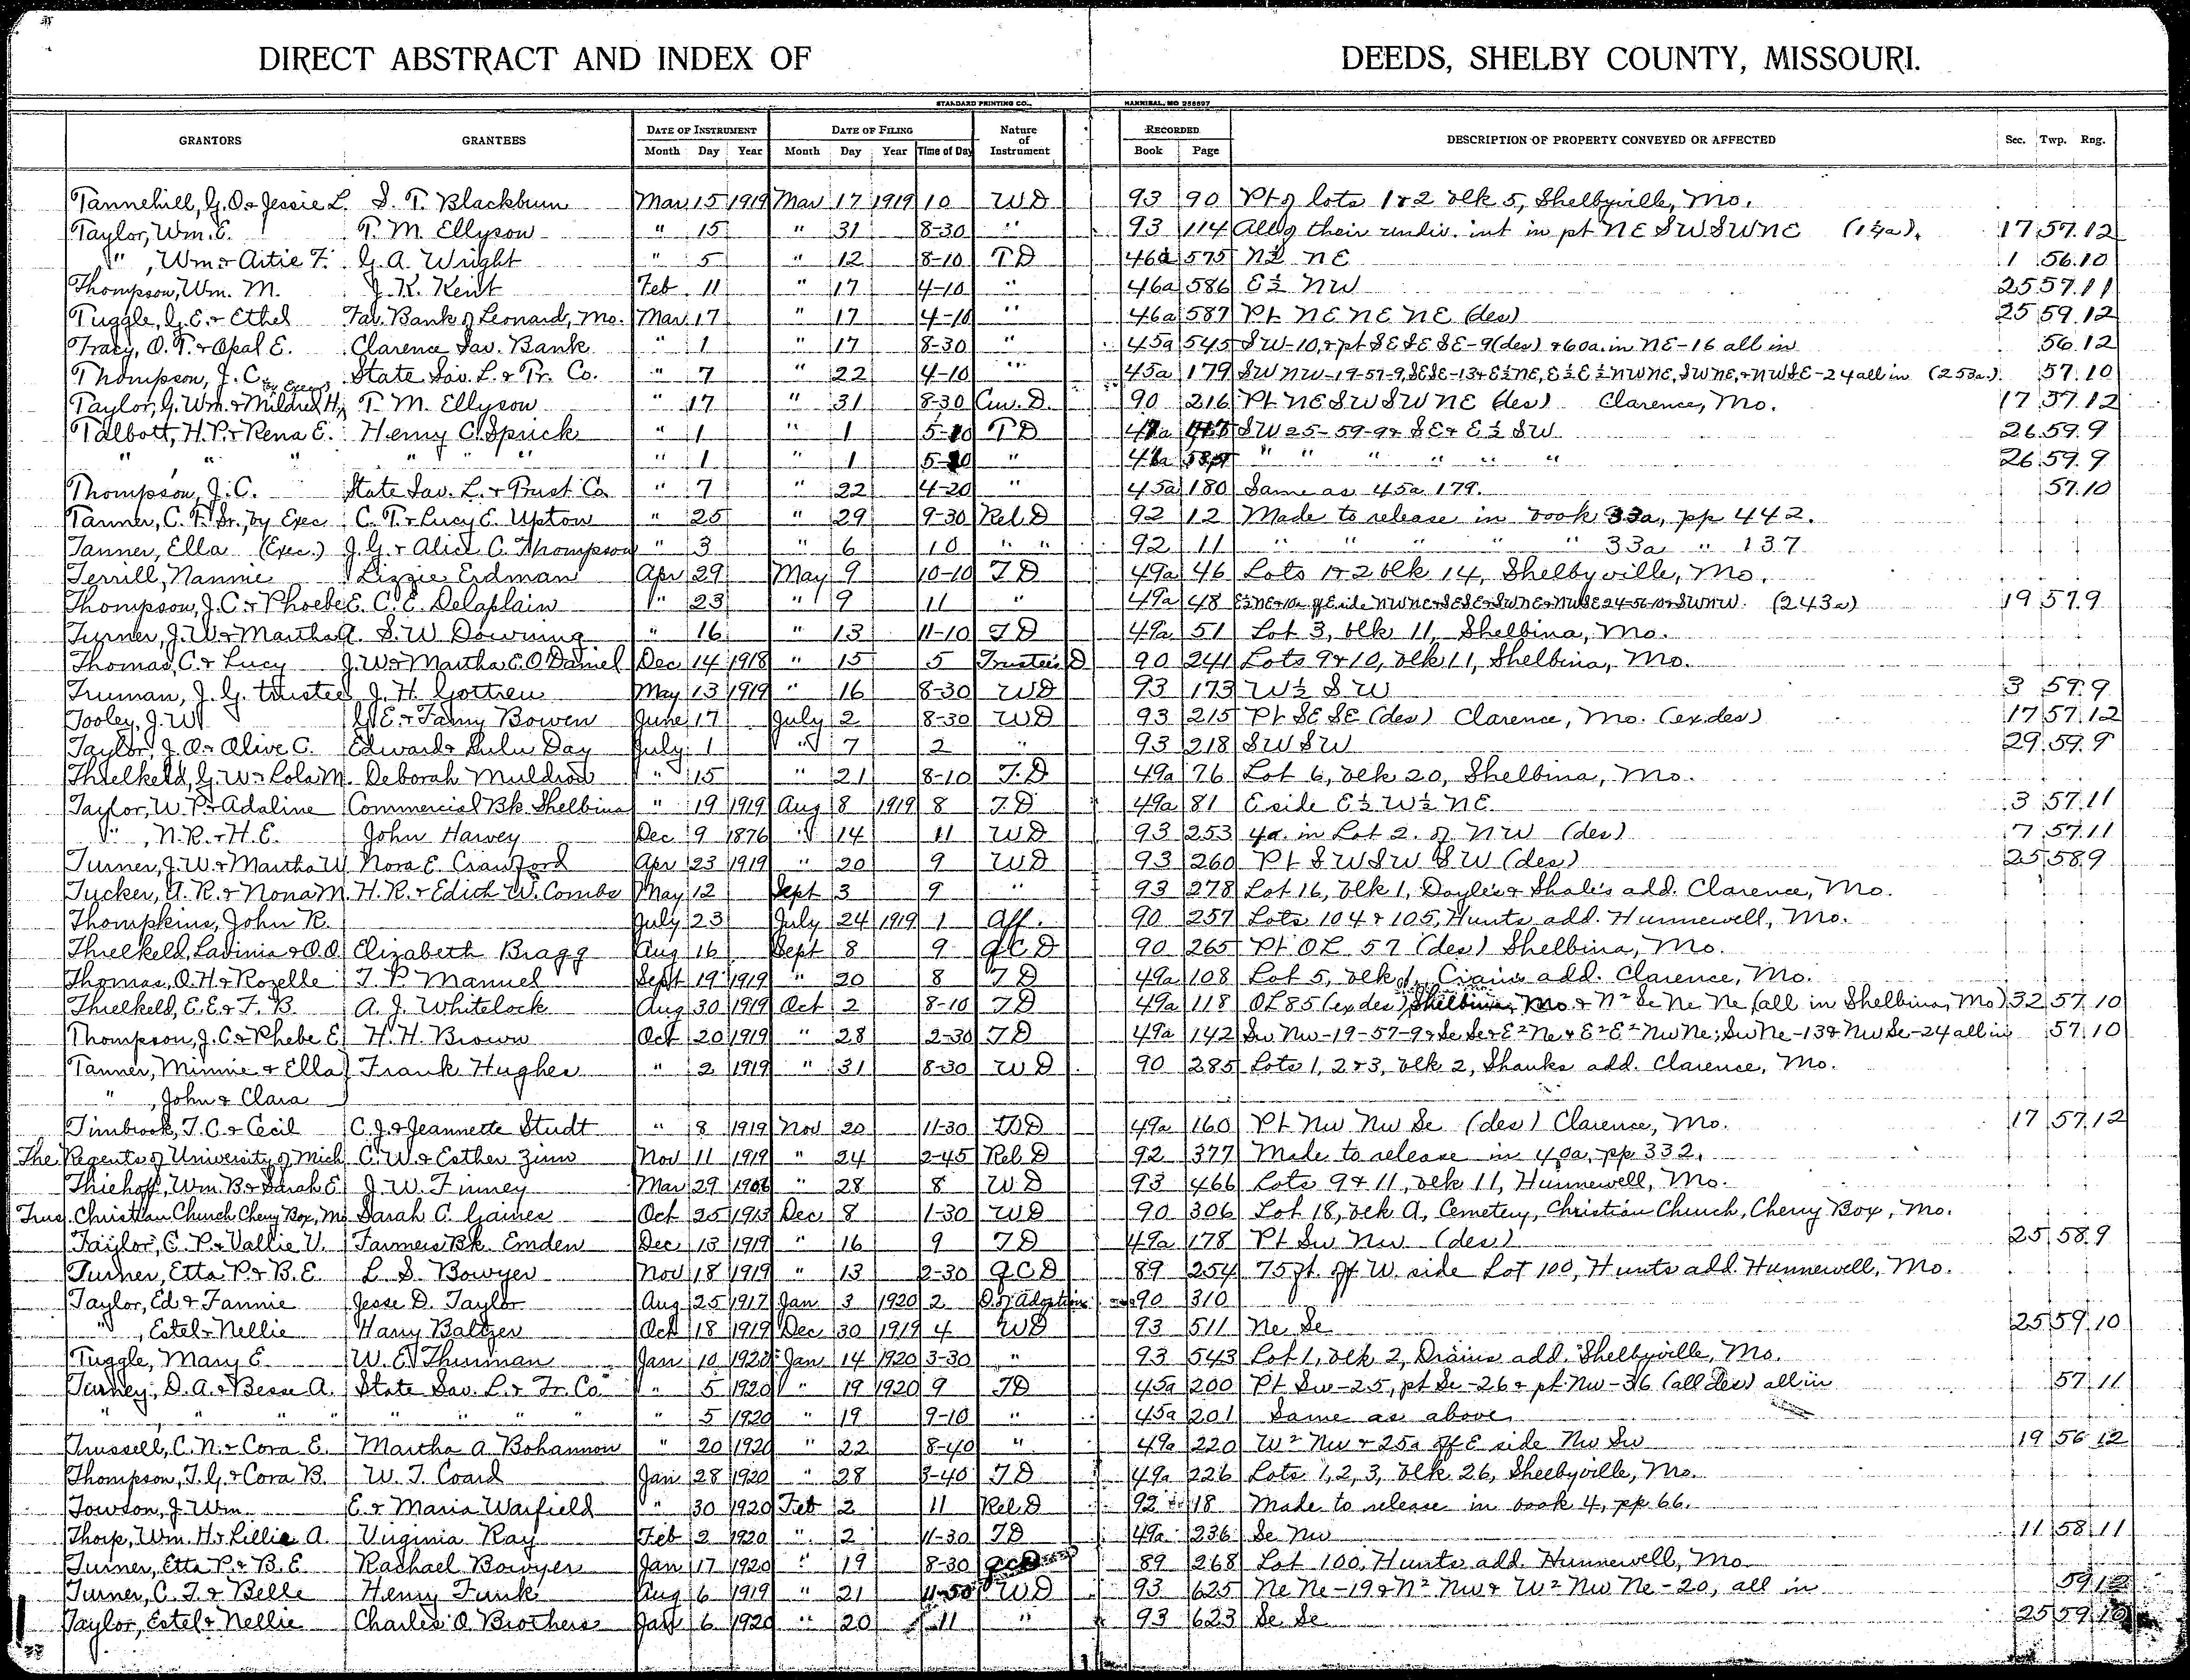 DIRECT ABSTRACT AND INDEX OF DEEDS, SHELBY COUNTY, MISSOURI.
STANDARD PRINTING CO., HANNIBAL, MO 258697
GRANTORS GRANTEES DATE OF INSTRUMENT DATE OF FILING Nature of Instrument RECORDED DESCRIPTION OF PROPERTY CONVEYED OR AFFECTED Sec. Twp. Rng.
Month Day Year Month Day Year Time of Day Book Page
Tannehill, G. O. & Jessie L. S. T. Blackburn Mar 15 1919 Mar 17 1919 10 WD 93 90 Pt of lots 1 & 2 blk 5, Shelbyville, Mo.
Taylor, Wm. E. T. M. Ellyson " 15 " 31 8-30 " 93 114 All of their undiv. int in pt NE SW SW NE (1¼a). 17 57.12
" , Wm & Artie F. G. A. Wright " 5 " 12 8-10 TD 46a 575 N½ NE 1 56.10
Thompson, Wm. M. J. K. Kent Feb 11 " 17 4-10 " 46a 586 E½ NW 25 57.11
Tuggle, G. E. & Ethel Fav. Bank of Leonard, Mo. Mar 17 " 17 4-10 " 46a 587 Pt NE NE NE (des) 25 59.12
Tracy, O. T. & Opal E. Clarence Sav. Bank " 1 " 17 8-30 " 45a 545 SW-10, & pt SE SE SE-9 (des) & 60a. in NE-16 all in 56.12
Thompson, J. C. State Sav. L. & Tr. Co. " 7 " 22 4-10 " 45a 179 SW NW-19-57-9, SE SE-13 & E½ NE, E½ E½ NW NE, SW NE, & NW SE-24 all in (253a). 57.10
Taylor, G. Wm. & Mildred H., T. M. Ellyson " 17 " 31 8-30 Cur. D. 90 216 Pt NE SW SW NE (des) Clarence, Mo. 17 57.12
Talbott, H. P. & Rena E. Henry C. Sprick " 1 " 1 5-10 TD SW 25-59-9 & SE & E½ SW 26.59.9
" " " " " " " " 1 " 1 " " " " " " " 26.59.9
Thompson, J. C. State Sav. L. & Trust Co " 7 " 22 4-20 " 45a 180 Same as 45a 179. 57.10
Tanner, C. T. Sr., by Exec C. T. & Lucy E. Upton " 25 " 29 9-30 Rel. D 92 12 Made to release in book 33a, pp 442.
Tanner, Ella (Exec.) J. G. & Alice C. Thompson " 3 " 6 10 " " 92 11 " " " " " 33a " 137
Terrill, Nannie Lizzie Erdman Apr 29 May 9 10-10 TD 49a 46 Lots 1 & 2 blk 14, Shelbyville, Mo.
Thompson, J. C. & Phoebe E. C. E. Delaplain " 23 " 9 11 " 49a 48 E½ NE & 10a off E side NW NE & SE SE & SW NE & NW SE 24-56-10 & SW NW. (243a) 19 57.9
Turner, J. W. & Martha A. S. W. Downing " 16 " 13 11-10 TD 49a 51 Lot 3, blk 11, Shelbina, Mo.
Thomas, C. & Lucy J. W. & Martha E. O'Daniel Dec 14 1918 " 15 5 Trustee's D 90 241 Lots 9 & 10, blk 11, Shelbina, Mo.
Truman, J. G. trustee J. H. Gottreu May 13 1919 " 16 8-30 WD 93 173 W½ SW 3 59.9
Tooley, J. W. G. E. & Fanny Bowen June 17 July 2 8-30 WD 93 215 Pt SE SE (des) Clarence, Mo. (ex.des) 17 57.12
Taylor, J. O. & Olive C. Edward & Lulu Day July 1 " 7 2 " 93 218 SW SW 29 59.9
Thielkeld, G. W. & Lola M. Deborah Muldrow " 15 " 21 8-10 T.D 49a 76 Lot 6, blk 20, Shelbina, Mo.
Taylor, W. P. & Adaline Commercial Bk. Shelbina " 19 1919 Aug 8 1919 8 TD 49a 81 E side E½ W½ NE 3 57.11
" , N. R. & H. E. John Harvey Dec 9 1876 " 14 11 WD 93 253 4a. in Lot 2. of NW (des) 7 57.11
Turner, J. W. & Martha W. Nora E. Crawford Apr 23 1919 " 20 9 WD 93 260 Pt SW SW SW (des) 25 58.9
Tucker, A. R. & Nona M. H. R. & Edith W. Combs May 12 Sept 3 9 " 93 278 Lot 16, blk 1, Doyle's & Shale's add. Clarence, Mo.
Thompkins, John R. July 23 July 24 1919 1 Aff. 90 257 Lots 104 & 105, Hunts add. Hunnewell, Mo.
Thielkeld, Lavinia & O. O. Elizabeth Bragg Aug 16 Sept 8 9 QCD 90 265 Pt OL 57 (des) Shelbina, Mo.
Thomas, O. H. & Rozelle T. P. Manuel Sept 19 1919 " 20 8 TD 49a 108 Lot 5, blk Crains add. Clarence, Mo.
Thielkeld, E. E. & F. B. A. J. Whitelock Aug 30 1919 Oct 2 8-10 TD 49a 118 OL 85 (ex des) Shelbina, Mo & N² Se Ne Ne (all in Shelbina, Mo) 32 57.10
Thompson, J. C. & Phebe E H. H. Brown Oct 20 1919 " 28 2-30 TD 49a 142 Sw Nw-19-57-9 & Se Se & E² Ne & E² E² Nw Ne; Sw Ne-13 & Nw Se-24 all in 57.10
Tanner, Minnie & Ella Frank Hughes " 2 1919 " 31 8-30 WD 90 285 Lots 1, 2 & 3, blk 2, Shanks add. Clarence, Mo.
" , John & Clara
Timbrook, T. C. & Cecil C. J. & Jeannette Studt " 8 1919 Nov 20 11-30 TD 49a 160 Pt Nw Nw Se (des) Clarence, Mo. 17 57.12
The Regents of University of Mich C. W. & Esther Zinn Nov 11 1919 " 24 2-45 Rel. D 92 377 Made to release in 40a, pp 332.
Thiehoff, Wm. B. & Sarah E J. W. Finney Mar 29 1906 " 28 8 WD 93 466 Lots 9 & 11, blk 11, Hunnewell, Mo.
Trus. Christian Church Cherry Box, Mo Sarah C. Gaines Oct 25 1913 Dec 8 1-30 WD 90 306 Lot 18, blk A, Cemetery, Christian Church, Cherry Box, Mo.
Taylor, C. P. & Vallie V. Farmers Bk. Emden Dec 13 1919 " 16 9 TD 49a 178 Pt Sw Nw (des) 25 58.9
Turner, Etta P. & B. E. L. S. Bowyer Nov 18 1919 " 13 2-30 QCD 89 254 75 ft. off W. side Lot 100, Hunts add. Hunnewell, Mo.
Taylor, Ed & Fannie Jesse D. Taylor Aug 25 1917 Jan 3 1920 2 D. of Adoption 90 310
" , Estel & Nellie Harry Baltzer Oct 18 1919 Dec 30 1919 4 WD 93 511 Ne Se 25 59.10
Tuggle, Mary E. W. E. Thurman Jan 10 1920 Jan 14 1920 3-30 " 93 543 Lot 1, blk 2, Drains add. Shelbyville, Mo.
Turney, D. A. & Besse A. State Sav. L. & Tr. Co " 5 1920 " 19 1920 9 TD 45a 200 Pt Sw-25, pt Se-26 & pt Nw-36 (all des) all in 57 11
" " " " " " " " " 5 1920 " 19 9-10 " 45a 201 Same as above
Trussell, C. N. & Cora E. Martha A. Bohannon " 20 1920 " 22 8-40 " 49a 220 W² Nw & 25a off E side Nw Sw 19 56 12
Thompson, T. G. & Cora B. W. T. Coard Jan 28 1920 " 28 3-40 TD 49a 226 Lots 1, 2, 3, blk 26, Shelbyville, Mo.
Towson, J. Wm. E. & Maria Warfield " 30 1920 Feb 2 11 Rel. D 92 18 Made to release in book 4, pp 66.
Thorp, Wm. H. & Lillie A. Virginia Ray Feb 2 1920 " 2 11-30 TD 49a 236 Se Nw 11 58 11
Turner, Etta P. & B. E. Rachael Bowyer Jan 17 1920 " 19 8-30 QCD 89 268 Lot 100, Hunts add. Hunnewell, Mo
Turner, C. T. & Belle Henry Funk Aug 6 1919 " 21 11-50 WD 93 625 Ne Ne-19 & N² Nw & W² Nw Ne-20, all in 59 12
Taylor, Estel & Nellie Charles O. Brothers Jan 6 1920 " 20 11 " 93 623 Se Se 25 59 10